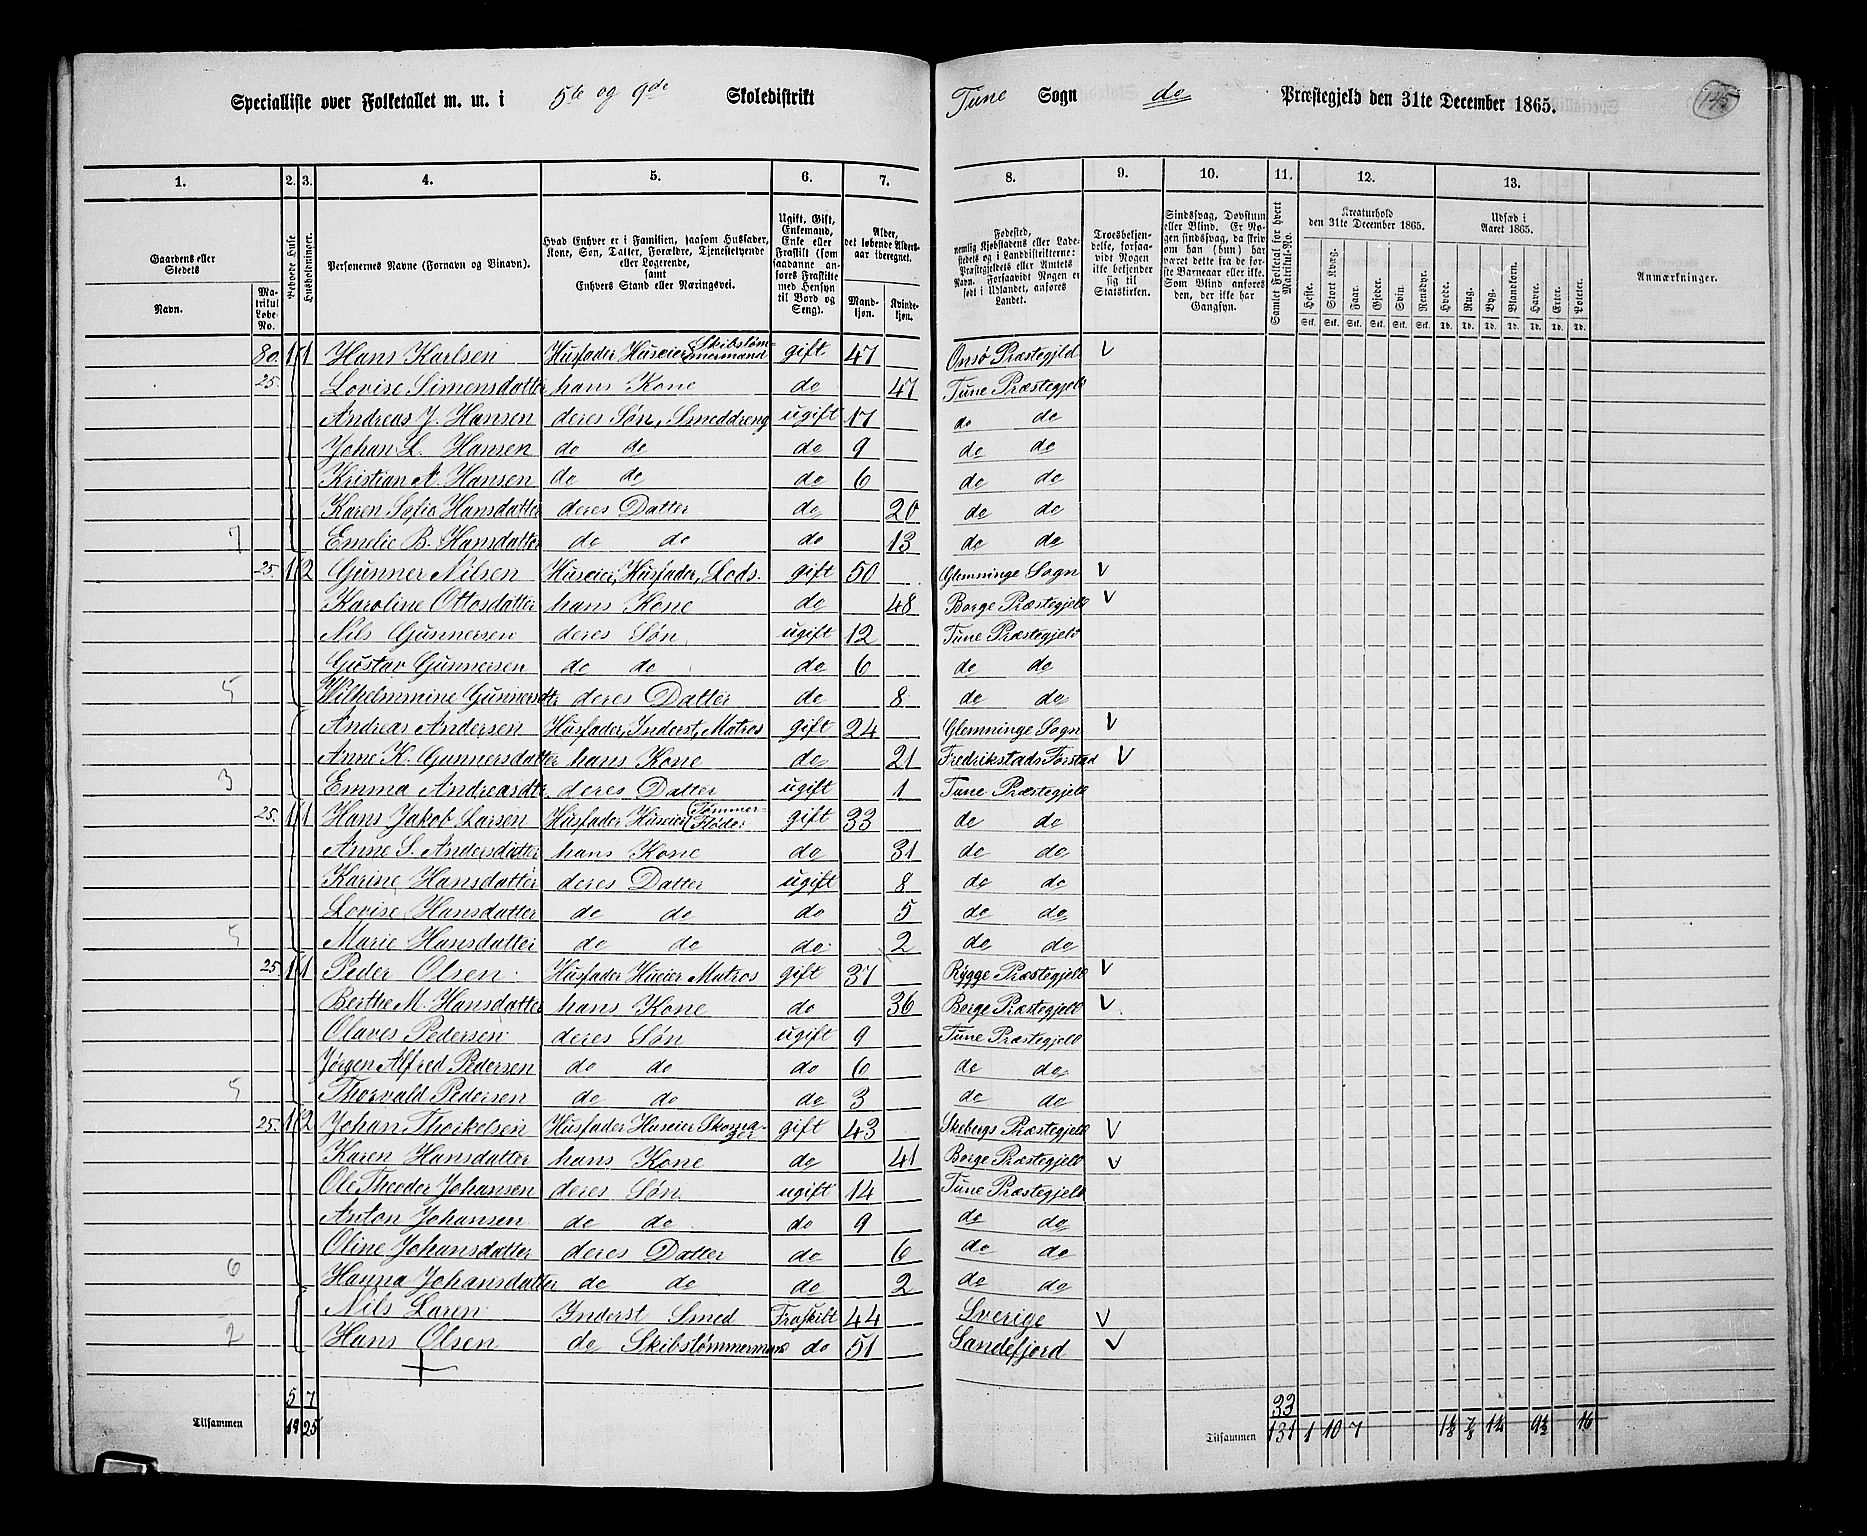 Specialliste over Folketallet m. m. i 5te og 9de Skoledistrikt Tune Sogn do Præstegjeld den 31te December 1865. 145
1. 2. 3. 4. 5. 6. 7. 8. 9. 10. 11. 12. 13.
Gaardens eller Stedets
Navn.
Matrikul Løbe-No.
Bebyede Huse
Husholdninger.
Personernes Navne (Fornavn og Tilnavn).
Hvad Enhver er i Familien, saasom Husfader, Kone, Søn, Datter, Forældre, Tjenestetyende eller Logerende, samt Enhvers Stand eller Næringsvei.
Ugift, Gift, Enkemand, Enke eller Fraskilt (som saadanne anføres Fraskilte med Hensyn til Bord og Seng).
Alder, det løbende Alders-aar iberegnet.
Mandkjøn.
Kvindekjøn.
Fødested, nemlig Kjøbstadens eller Ladestedets og i Landdistrikterne: Præstegjeldets eller Amtets Navn. Forsaavidt Nogen er født i Udlandet, anføres Landet.
Troesbekjendelse, forsaavidt Nogen ikke bekjender sig til Statskirken.
Sindssvag, Døvstum eller Blind. Er Nogen sindssvag, da skrives om han (hun) har været dette fra de første Barneaar eller ikke. Som Blind ansføres den, der ikke har Gangsyn.
Samlet Folketal for hvert Matrikul-No.
Kreaturhold den 31te December 1865.
Heste. Stort Kvæg. Faar. Gjeder. Svin. Rensdyr.
Stk. Stk. Stk. Stk. Stk. Stk.
Udsæd i Aaret 1865.
Hvede. Rug. Byg. Blandkorn. Havre. Erter. Poteter.
Td. Td. Td. Td. Td. Td. Td.
Anmærkninger.
80. 1 1 Hans Karlsen Husfader Huseier Skibstømmermand gift 47 Onsø Præstegjeld V
25. Lovise Simensdatter hans Kone do 47 Tune Præstegjeld
Andreas J. Hansen deres Søn, Smeddreng ugift 17 do do
Johan L. Hansen do do do 9 do do
Kristian A. Hansen do do do 6 do do
Karen Sofie Hansdatter deres Datter do 20 do do
7 Emelie B. Hansdatter do do do 13 do do
25. 1 2 Gunner Nilsen Huseier, Husfader, Lods. gift 50 Glemminge Sogn V
Karoline Ottosdatter hans Kone do 48 Borge Præstegjeld V
Nils Gunnersen deres Søn ugift 12 Tune Præstegjeld
Gustav Gunnersen do do do 6 do do
5 Wilhelmmine Gunnersdtr deres Datter do 8 do do
Andreas Andersen Husfader, Inderst, Matros gift 24 Glemminge Sogn V
Anne K. Gunnersdatter hans Kone do 21 Fredrikstads Forstad V
3 Emma Andreasdtr deres Datter ugift 1 Tune Præstegjeld
25. 1 1 Hans Jakob Larsen Husfader Huseier Tømmer-Fløder gift 33 do do
Anne S. Andersdatter hans Kone do 31 do do
Karine Hansdatter deres Datter ugift 8 do do
Lovise Hansdatter do do do 5 do do
5 Marie Hansdatter do do do 2 do do
25 1 1 Peder Olsen Husfader Huseier Matros gift 31 Rygge Præstegjeld V
Berthe M. Hansdatter hans Kone do 36 Borge Præstegjeld V
Olaves Pedersen deres Søn ugift 9 Tune Præstegjeld
Jørgen Alfred Pedersen do do do 6 do do
5 Thorvald Pedersen do do do 3 do do
25. 1 2 Johan Thorkelsen Husfader Huseier Skomager gift 43 Skebergs Præstegjeld V
Karen Hansdatter hans Kone do 41 Borge Præstegjeld V
Ole Theodor Johansen deres Søn ugift 14 Tune Præstegjeld
Anton Johansen do do do 9 do do
Oline Johansdatter deres Datter do 6 do do
6 Hanna Johansdatter do do do 2 do do
Nils Loren Inderst Smed Fraskilt 44 Sverige V
2 Hans Olsen do Skibstømmermand do 51 Sandefjord V
5 7 33
Tilsammen 19 25 Tilsammen 131 1 10 7 16